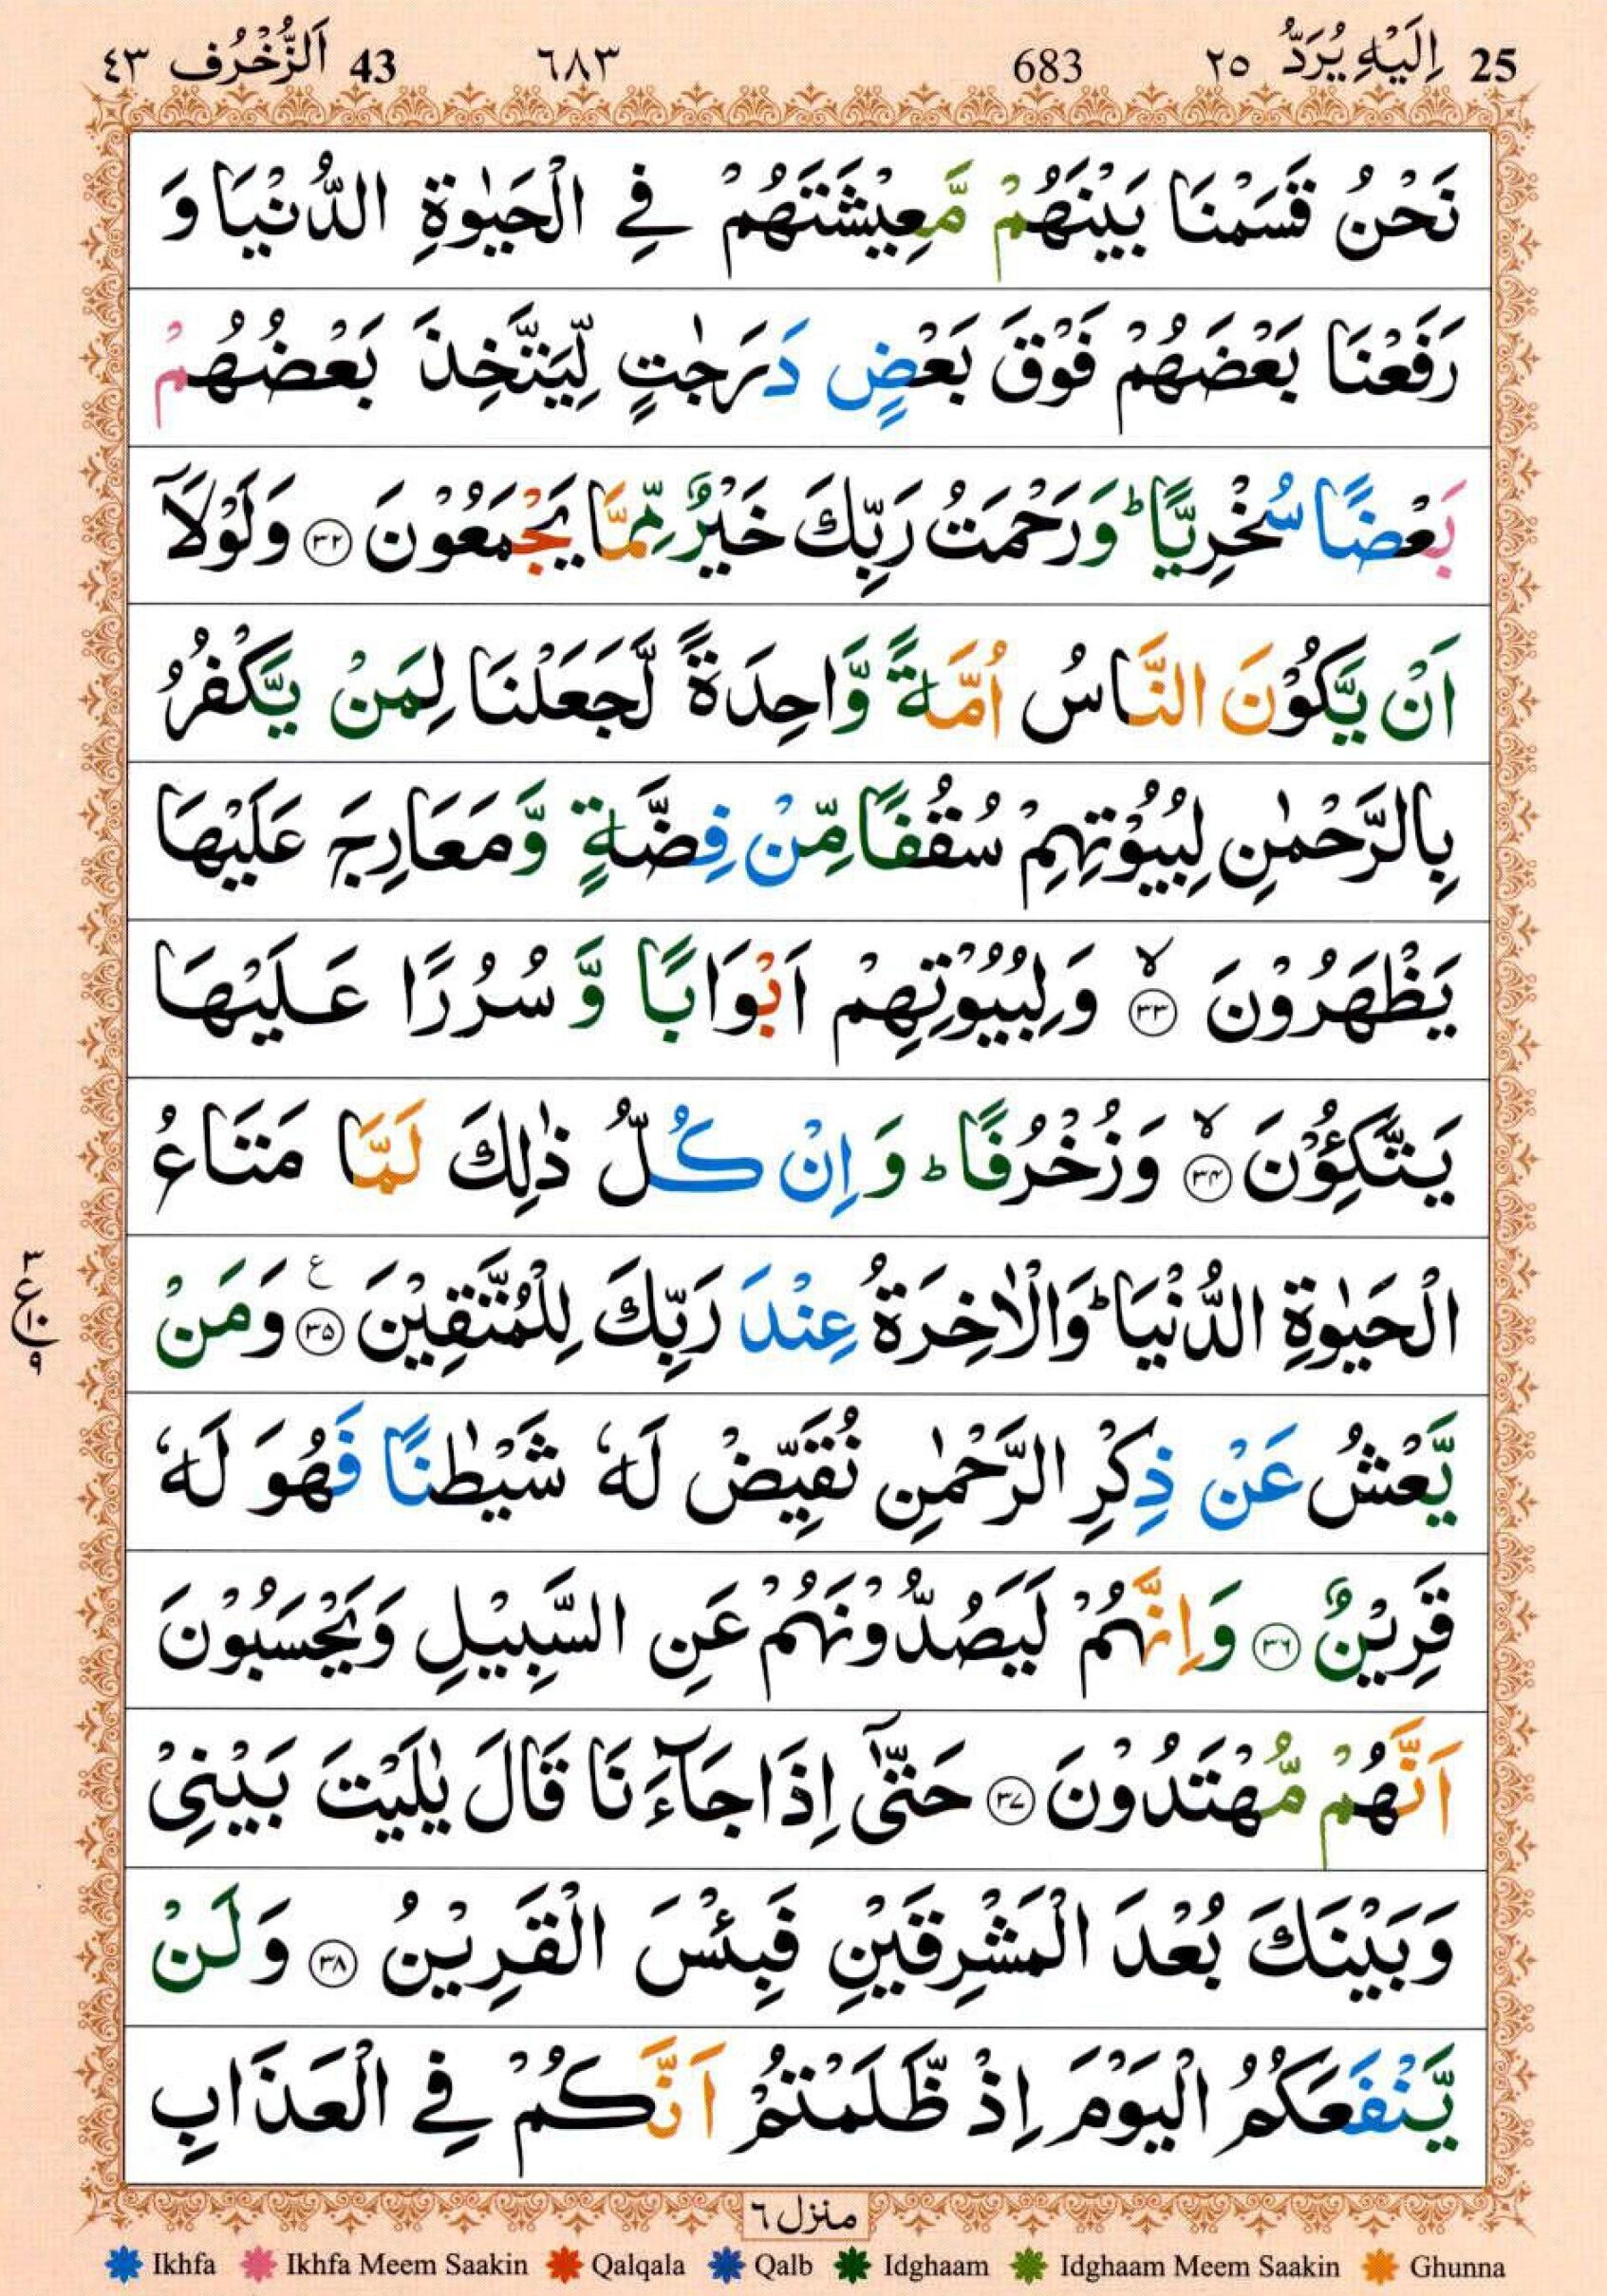 25 اِلَيْهِ يُرَدُّ ٢٥ 683 ٦٨٣ 43 اَلزُّخْرُف ٤٣
نَحْنُ قَسَمْنَا بَيْنَهُمْ مَّعِيْشَتَهُمْ فِي الْحَيٰوةِ الدُّنْيَا وَ
رَفَعْنَا بَعْضَهُمْ فَوْقَ بَعْضٍ دَرَجٰتٍ لِّيَتَّخِذَ بَعْضُهُمْ
بَعْضًا سُخْرِيًّا ؕ وَرَحْمَتُ رَبِّكَ خَيْرٌ مِّمَّا يَجْمَعُوْنَ ۝۳۲ وَلَوْلَاۤ
اَنْ يَّكُوْنَ النَّاسُ اُمَّةً وَّاحِدَةً لَّجَعَلْنَا لِمَنْ يَّكْفُرُ
بِالرَّحْمٰنِ لِبُيُوْتِهِمْ سُقُفًا مِّنْ فِضَّةٍ وَّمَعَارِجَ عَلَيْهَا
يَظْهَرُوْنَ ۙ۝۳۳ وَلِبُيُوْتِهِمْ اَبْوَابًا وَّ سُرُرًا عَلَيْهَا
يَتَّكِـُٔوْنَ ۙ۝۳۴ وَزُخْرُفًا ؕ وَ اِنْ كُلُّ ذٰلِكَ لَمَّا مَتَاعُ
الْحَيٰوةِ الدُّنْيَا ؕ وَالْاٰخِرَةُ عِنْدَ رَبِّكَ لِلْمُتَّقِيْنَ ۝۳۵ ع وَمَنْ
٣ ع ١٠ ٩
يَّعْشُ عَنْ ذِكْرِ الرَّحْمٰنِ نُقَيِّضْ لَهٗ شَيْطٰنًا فَهُوَ لَهٗ
قَرِيْنٌ ۝۳۶ وَاِنَّهُمْ لَيَصُدُّوْنَهُمْ عَنِ السَّبِيْلِ وَيَحْسَبُوْنَ
اَنَّهُمْ مُّهْتَدُوْنَ ۝۳۷ حَتّٰۤى اِذَا جَآءَنَا قَالَ يٰلَيْتَ بَيْنِيْ
وَبَيْنَكَ بُعْدَ الْمَشْرِقَيْنِ فَبِئْسَ الْقَرِيْنُ ۝۳۸ وَلَنْ
يَّنْفَعَكُمُ الْيَوْمَ اِذْ ظَّلَمْتُمْ اَنَّكُمْ فِي الْعَذَابِ
منزل ٦
Ikhfa Ikhfa Meem Saakin Qalqala Qalb Idghaam Idghaam Meem Saakin Ghunna